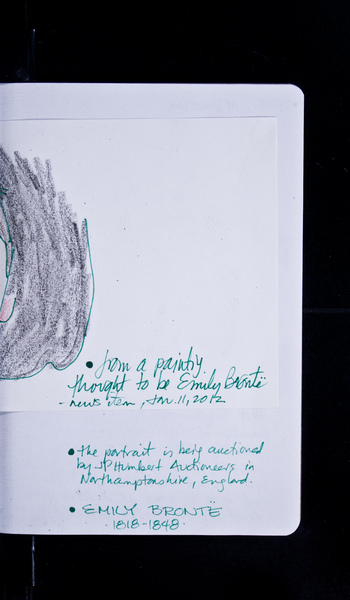 • from a painting
thought to be Emily Brontë
- news item, Jan. 11, 2012
• The portrait is being auctioned
by JP Humbert Auctioneers in
Northamptonshire, England.
• EMILY BRONTË
1818-1848